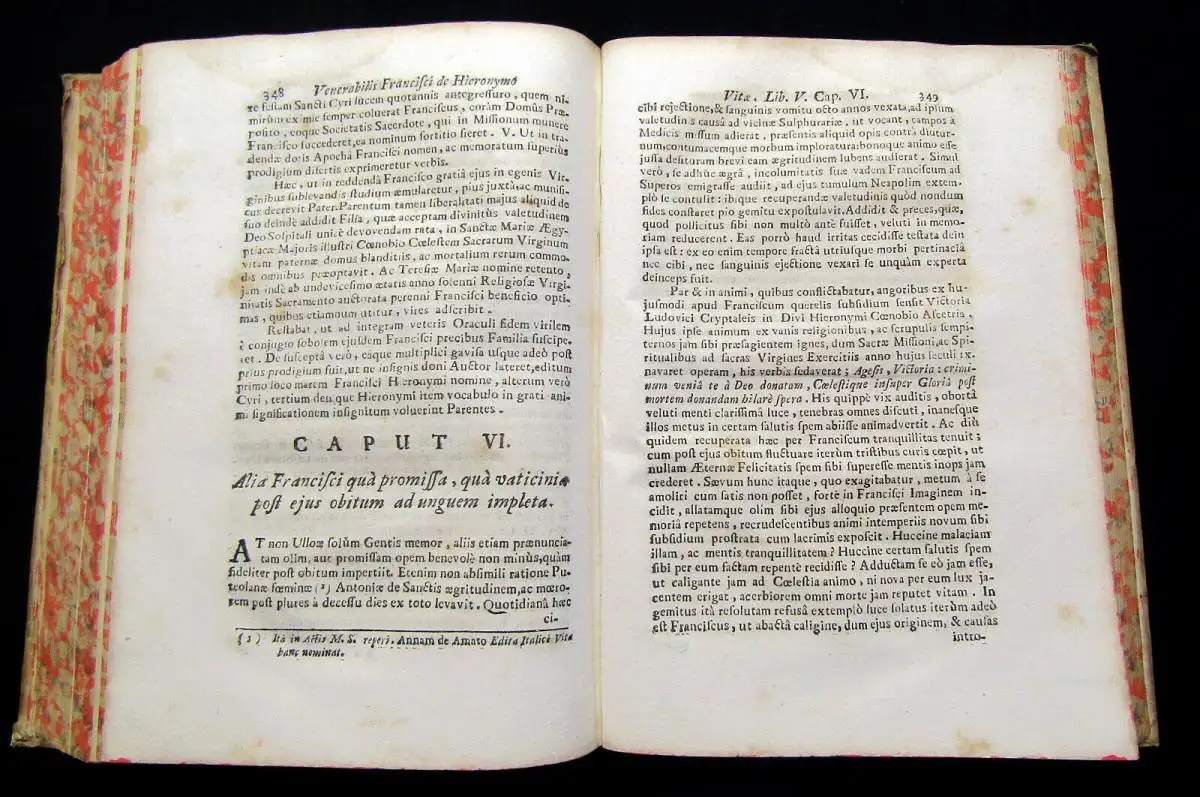 348 Venerabilis Francisci de Hieronymo
re festam Sancti Cyri lucem quotannis antegressuro, quem ni-
mirùm eximiè semper coluerat Franciscus, coràm Domûs Præ-
posito, eoque Societatis Sacerdote, qui in Missionum munere
Francisco succederet, ea nominum sortitio fieret. V. Ut in tra-
dendæ dotis Apochâ Francisci nomen, ac memoratum superiùs
prodigium disertis exprimeretur verbis.
Hæc, ut in reddendâ Francisco gratiâ ejus in egenis Vir-
ginibus sublevandis studium æmularetur, pius juxtà, ac munifi-
cus decrevit Pater. Parentum tamen liberalitati majus aliquid de
suo deindè addidit Filia, quæ acceptam divinitus valetudinem
Deo Sospitali unicè devovendam rata, in Sanctæ Mariæ Ægy-
ptiacæ Majoris illustri Cœnobio Cœlestem Sacrarum Virginum
vitam paternæ domus blanditiis, ac mortalium rerum commo-
dis omnibus præoptavit. Ac Teresiæ Mariæ nomine retento,
jam indè ab undevicesimo ætatis anno solenni Religiosæ Virgi-
nitatis Sacramento auctorata perenni Francisci beneficio opti-
mas, quibus etiamnum utitur, vires adscribit.
Restabat, ut ad integram veteris Oraculi fidem virilem
è conjugio sobolem ejusdem Francisci precibus Familia suscipe-
ret. De susceptâ verò, eâque multiplici gavisa usque adeò post
prius prodigium fuit, ut ne insignis doni Auctor lateret, editum
primo loco marem Francisci Hieronymi nomine, alterum verò
Cyri, tertium denique Hieronymi item vocabulo in grati ani-
mi significationem insignitum voluerint Parentes.
CAPUT VI.
Alia Francisci quà promissa, quà vaticinia
post ejus obitum ad unguem impleta.
AT non Ulloæ solùm Gentis memor, aliis etiam prænuncia-
tam olim, aut promissam opem benevolè non minùs, quàm
fideliter post obitum impertiit. Etenim non absimili ratione Pu-
teolanæ fœminæ (1) Antoniæ de Sanctis ægritudinem, ac mœro-
rem post plures à decessu dies ex toto levavit. Quotidianâ hæc
ci-
(1) Ità in Actis M. S. reperi. Annam de Amato Edita Italicè Vita
hanc nominat.
Vitæ. Lib. V. Cap. VI. 349
cibi rejectione, & sanguinis vomitu octo annos vexata, ad ipsum
valetudinis causâ ad vicinæ Sulphurariæ, ut vocant, campos à
Medicis missum adierat, præsentis aliquid opis contrà diutur-
num, contumacemque morbum imploratura: bonoque animo esse
jussa desituram brevi eam ægritudinem lubens audierat. Simul
verò, se adhùc ægrâ, incolumitatis suæ vadem Franciscum ad
Superos emigrasse audiit, ad ejus tumulum Neapolim extem-
plò se contulit: ibique recuperandæ valetudinis quòd nondum
fides constaret pio gemitu expostulavit. Addidit & preces, quæ,
quod pollicitus sibi non multò antè fuisset, veluti in memo-
riam reducerent. Eas porrò haud irritas cecidisse testata dein
ipsa est: ex eo enim tempore fractâ utriusque morbi pertinaciâ
nec cibi, nec sanguinis ejectione vexari se unquam experta
deinceps fuit.
Par & in animi, quibus conflictabatur, angoribus ex hu-
jusmodi apud Franciscum querelis subsidium sensit Victoria
Ludovici Cryptaleis in Divi Hieronymi Cœnobio Ascetria.
Hujus ipse animum ex vanis religionibus, ac scrupulis sempi-
ternos jam sibi præsagientem ignes, dum Sacræ Missioni, ac Spi-
ritualibus ad sacras Virgines Exercitiis anno hujus seculi IX.
navaret operam, his verbis sedaverat; Agesis, Victoria: crimi-
num veniâ te à Deo donatam, Cœlestique insuper Gloriâ post
mortem donandam hilarè spera. His quippè vix auditis, obortâ
veluti menti clarissimâ luce, tenebras omnes discuti, inanesque
illos metus in certam salutis spem abiisse animadvertit. Ac diù
quidem recuperata hæc per Franciscum tranquillitas tenuit;
cum post ejus obitum fluctuare iterùm tristibus curis cœpit, ut
nullam Æternæ Felicitatis spem sibi superesse mentis inops jam
crederet. Sævum hunc itaque, quo exagitabatur, metum à se
amoliri cum satis non posset, fortè in Francisci Imaginem in-
cidit, allatamque olim sibi ejus alloquio præsentem opem me-
moriâ repetens, recrudescentibus animi intemperiis novum sibi
subsidium prostrata cum lacrimis exposcit. Huccine malaciam
illam, ac mentis tranquillitatem? Huccine certam salutis spem
sibi per eum factam repentè recidisse? Adductam se eò jam esse,
ut caligante jam ad Cœlestia animo, ni nova per eum lux ja-
centem erigat, acerbiorem omni morte jam reputet vitam. In
gemitus ità resolutam refusâ extemplò luce solatus iterùm adeò
est Franciscus, ut abactâ caligine, dum ejus originem, & causas
intro-